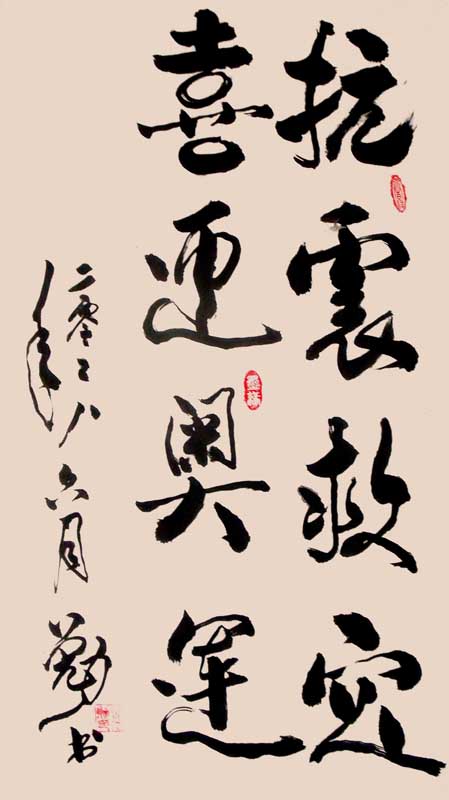 抗震救灾
喜迎奥運
二零零八年六月
书